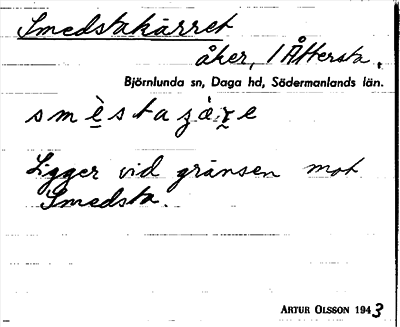 Smedstakärret
åker, 1 Åttersta.
Björnlunda sn, Daga hd, Södermanlands län.
smèstazàre
Ligger vid gränsen mot
Smedsta.
ARTUR OLSSON 1943